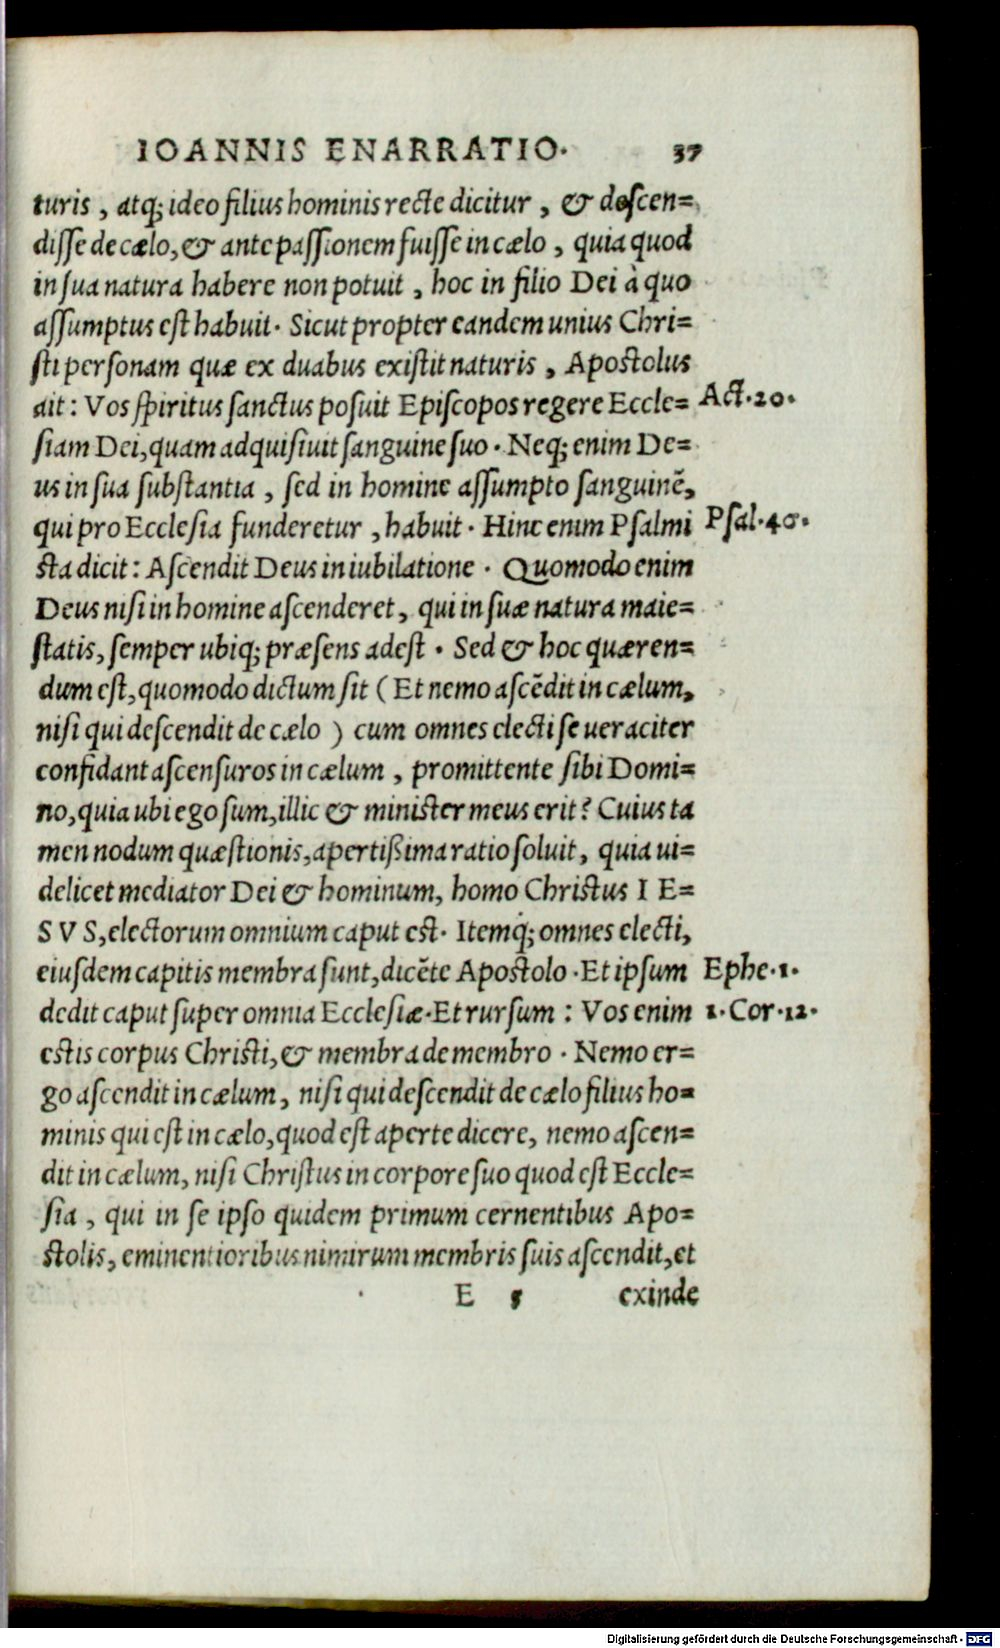 IOANNIS ENARRATIO. 37
turis, atq; ideo filius hominis recte dicitur, & descen=
disse de cælo, & ante passionem fuisse in cælo, quia quod
in sua natura habere non potuit, hoc in filio Dei à quo
assumptus est habuit. Sicut propter eandem unius Chri=
sti personam quæ ex duabus existit naturis, Apostolus
ait: Vos spiritus sanctus posuit Episcopos regere Eccle= Act.20.
siam Dei, quam adquisiuit sanguine suo. Neq; enim De=
us in sua substantia, sed in homine assumpto sanguinē,
qui pro Ecclesia funderetur, habuit. Hinc enim Psalmi Psal.46.
sta dicit: Ascendit Deus in iubilatione. Quomodo enim
Deus nisi in homine ascenderet, qui in suæ natura maie=
statis, semper ubiq; præsens adest. Sed & hoc quæren=
dum est, quomodo dictum sit (Et nemo ascēdit in cælum,
nisi qui descendit de cælo) cum omnes electi se ueraciter
confidant ascensuros in cælum, promittente sibi Domi=
no, quia ubi ego sum, illic & minister meus erit? Cuius ta
men nodum quæstionis, apertißima ratio soluit, quia ui=
delicet mediator Dei & hominum, homo Christus I E=
S V S, electorum omnium caput est. Itemq́; omnes electi,
eiusdem capitis membra sunt, dicēte Apostolo. Et ipsum Ephe.1.
dedit caput super omnia Ecclesiæ. Et rursum: Vos enim 1.Cor.12.
estis corpus Christi, & membra de membro. Nemo er=
go ascendit in cælum, nisi qui descendit de cælo filius ho=
minis qui est in cælo, quod est aperte dicere, nemo ascen=
dit in cælum, nisi Christus in corpore suo quod est Eccle=
sia, qui in se ipso quidem primum cernentibus Apo=
stolis, eminentioribus nimirum membris suis ascendit, et
E 5 exinde
Digitalisierung gefördert durch die Deutsche Forschungsgemeinschaft - DFG